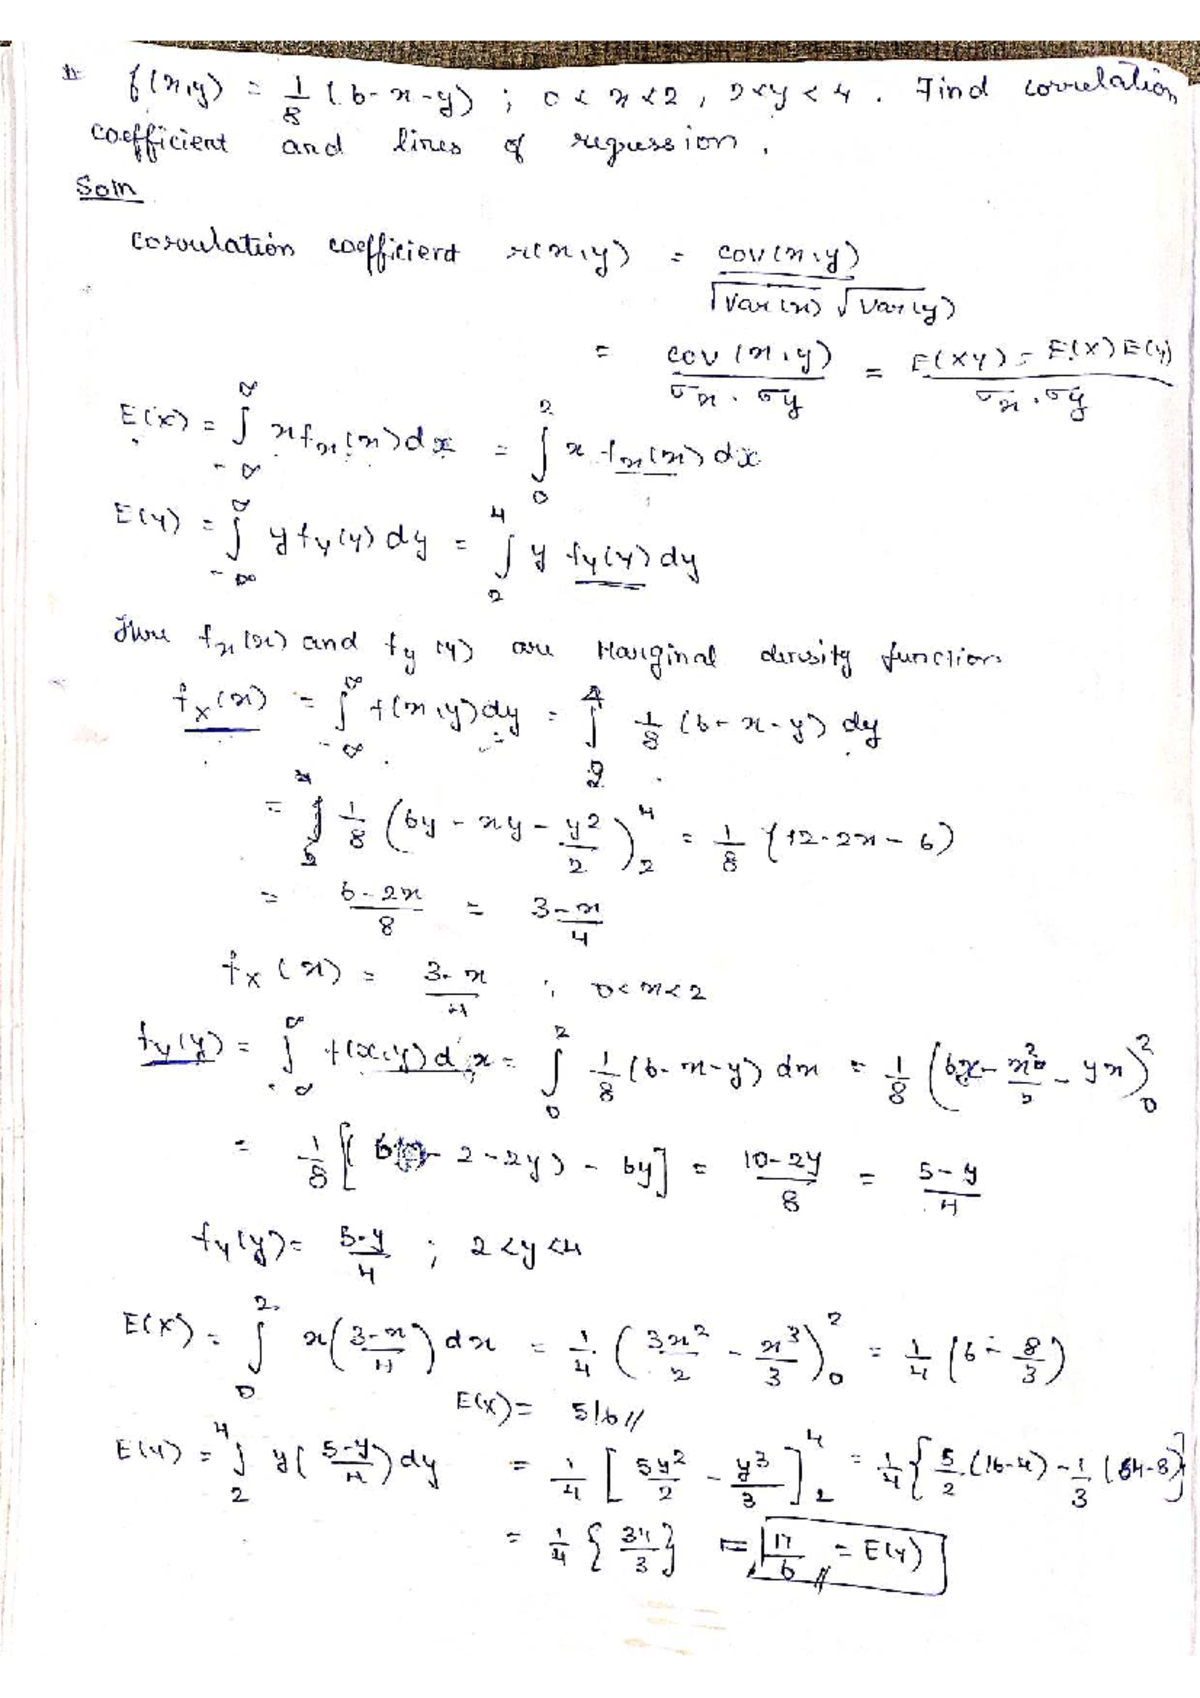 1. f(x,y) = 1/8 (6-x-y) ; 0 < x < 2 , 2<y < 4 . Find correlation
coefficient and lines of regression .
Soln
correlation coefficient r(x,y) = cov(x,y) / √var(x) √var(y)
= cov(x,y) / σx . σy = E(XY) - E(X) E(Y) / σx . σy
E(X) = ∫_{-∞}^{∞} x fx(x) dx = ∫_0^2 x fx(x) dx
E(Y) = ∫_{-∞}^{∞} y fy(y) dy = ∫_2^4 y fy(y) dy
Here fx(x) and fy(y) are Marginal density function.
fX(x) = ∫_{-∞}^{∞} f(x,y) dy = ∫_2^4 1/8 (6-x-y) dy
= 1/8 (6y - xy - y²/2)_2^4 = 1/8 (12-2x-6)
= 6-2x / 8 = 3-x / 4
fX(x) = 3-x / 4 ; 0<x<2
fY(y) = ∫_{-∞}^{∞} f(x,y) dx = ∫_0^2 1/8 (6-x-y) dx = 1/8 (6x - x²/2 - yx)_0^2
= 1/8 [ - 2 - 2y) - 6y] = 10-2y / 8 = 5-y / 4
fY(y) = 5-y / 4 ; 2<y<4
E(X) = ∫_0^2 x (3-x / 4) dx = 1/4 (3x²/2 - x³/3)_0^2 = 1/4 (6 - 8/3)
E(X) = 5/6 //
E(Y) = ∫_2^4 y (5-y / 4) dy = 1/4 [5y²/2 - y³/3]_2^4 = 1/4 {5/2 (16-4) - 1/3 (64-8)}
= 1/4 {34/3} = 17/6 // = E(Y)